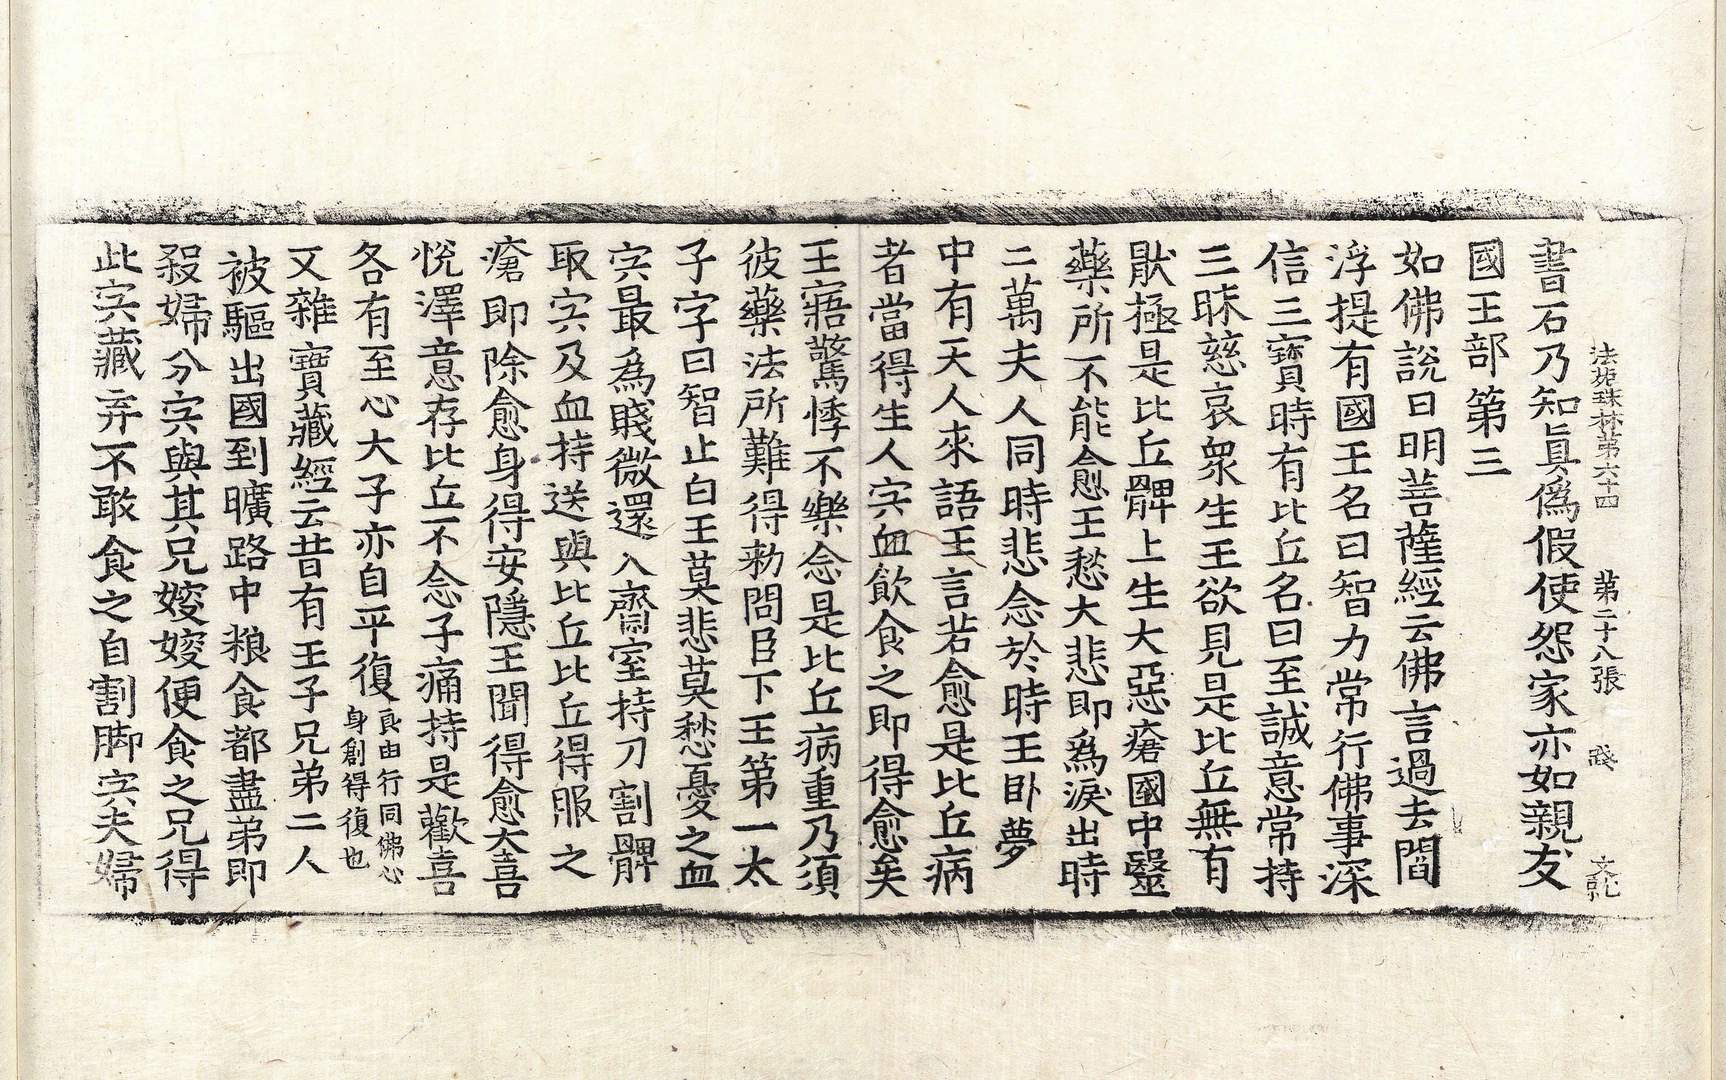 法苑珠林第六十四　第二十八張　踐　文記
書石乃知眞僞假使怨家亦如親友
國王部第三
如佛說日明菩薩經云佛言過去閻
浮提有國王名曰智力常行佛事深
信三寶時有比丘名曰至誠意常持
三昧慈哀衆生王欲見是比丘無有
猒極是比丘髀上生大惡瘡國中醫
藥所不能愈王愁大悲卽爲淚出時
二萬夫人同時悲念於時王卧夢
中有天人來語王言若愈是比丘病
者當得生人宍血飮食之卽得愈矣
王寤驚悸不樂念是比丘病重乃須
彼藥法所難得勑問臣下王第一太
子字曰智止白王莫悲莫愁憂之血
宍最爲賤微還入齋室持刀割髀
取宍及血持送與比丘比丘得服之
瘡卽除愈身得安隱王聞得愈大喜
悅澤意存比丘不念子痛持是歡喜
各有至心大子亦自平復良由行同佛心身創得復也
又雜寶藏經云昔有王子兄弟二人
被驅出國到曠路中粮食都盡弟卽
殺婦分宍與其兄嫂嫂便食之兄得
此宍藏弃不敢食之自割脚宍夫婦